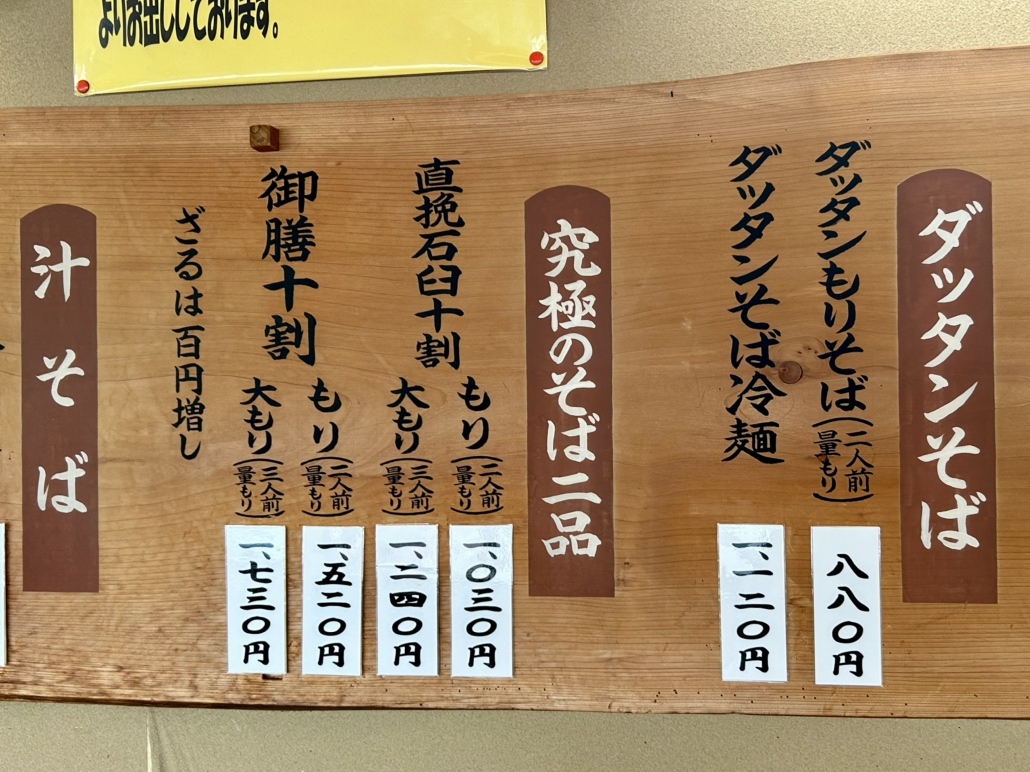 よりお出ししております。
ダッタンそば
ダッタンもりそば(二人前量もり)
八八〇円
ダッタンそば冷麺
一、一二〇円
究極のそば二品
直挽石臼十割
もり(二人前量もり)
一、〇三〇円
大もり(三人前量もり)
一、二四〇円
御膳十割
もり(二人前量もり)
一、五二〇円
大もり(三人前量もり)
一、七三〇円
ざるは百円増し
汁そば